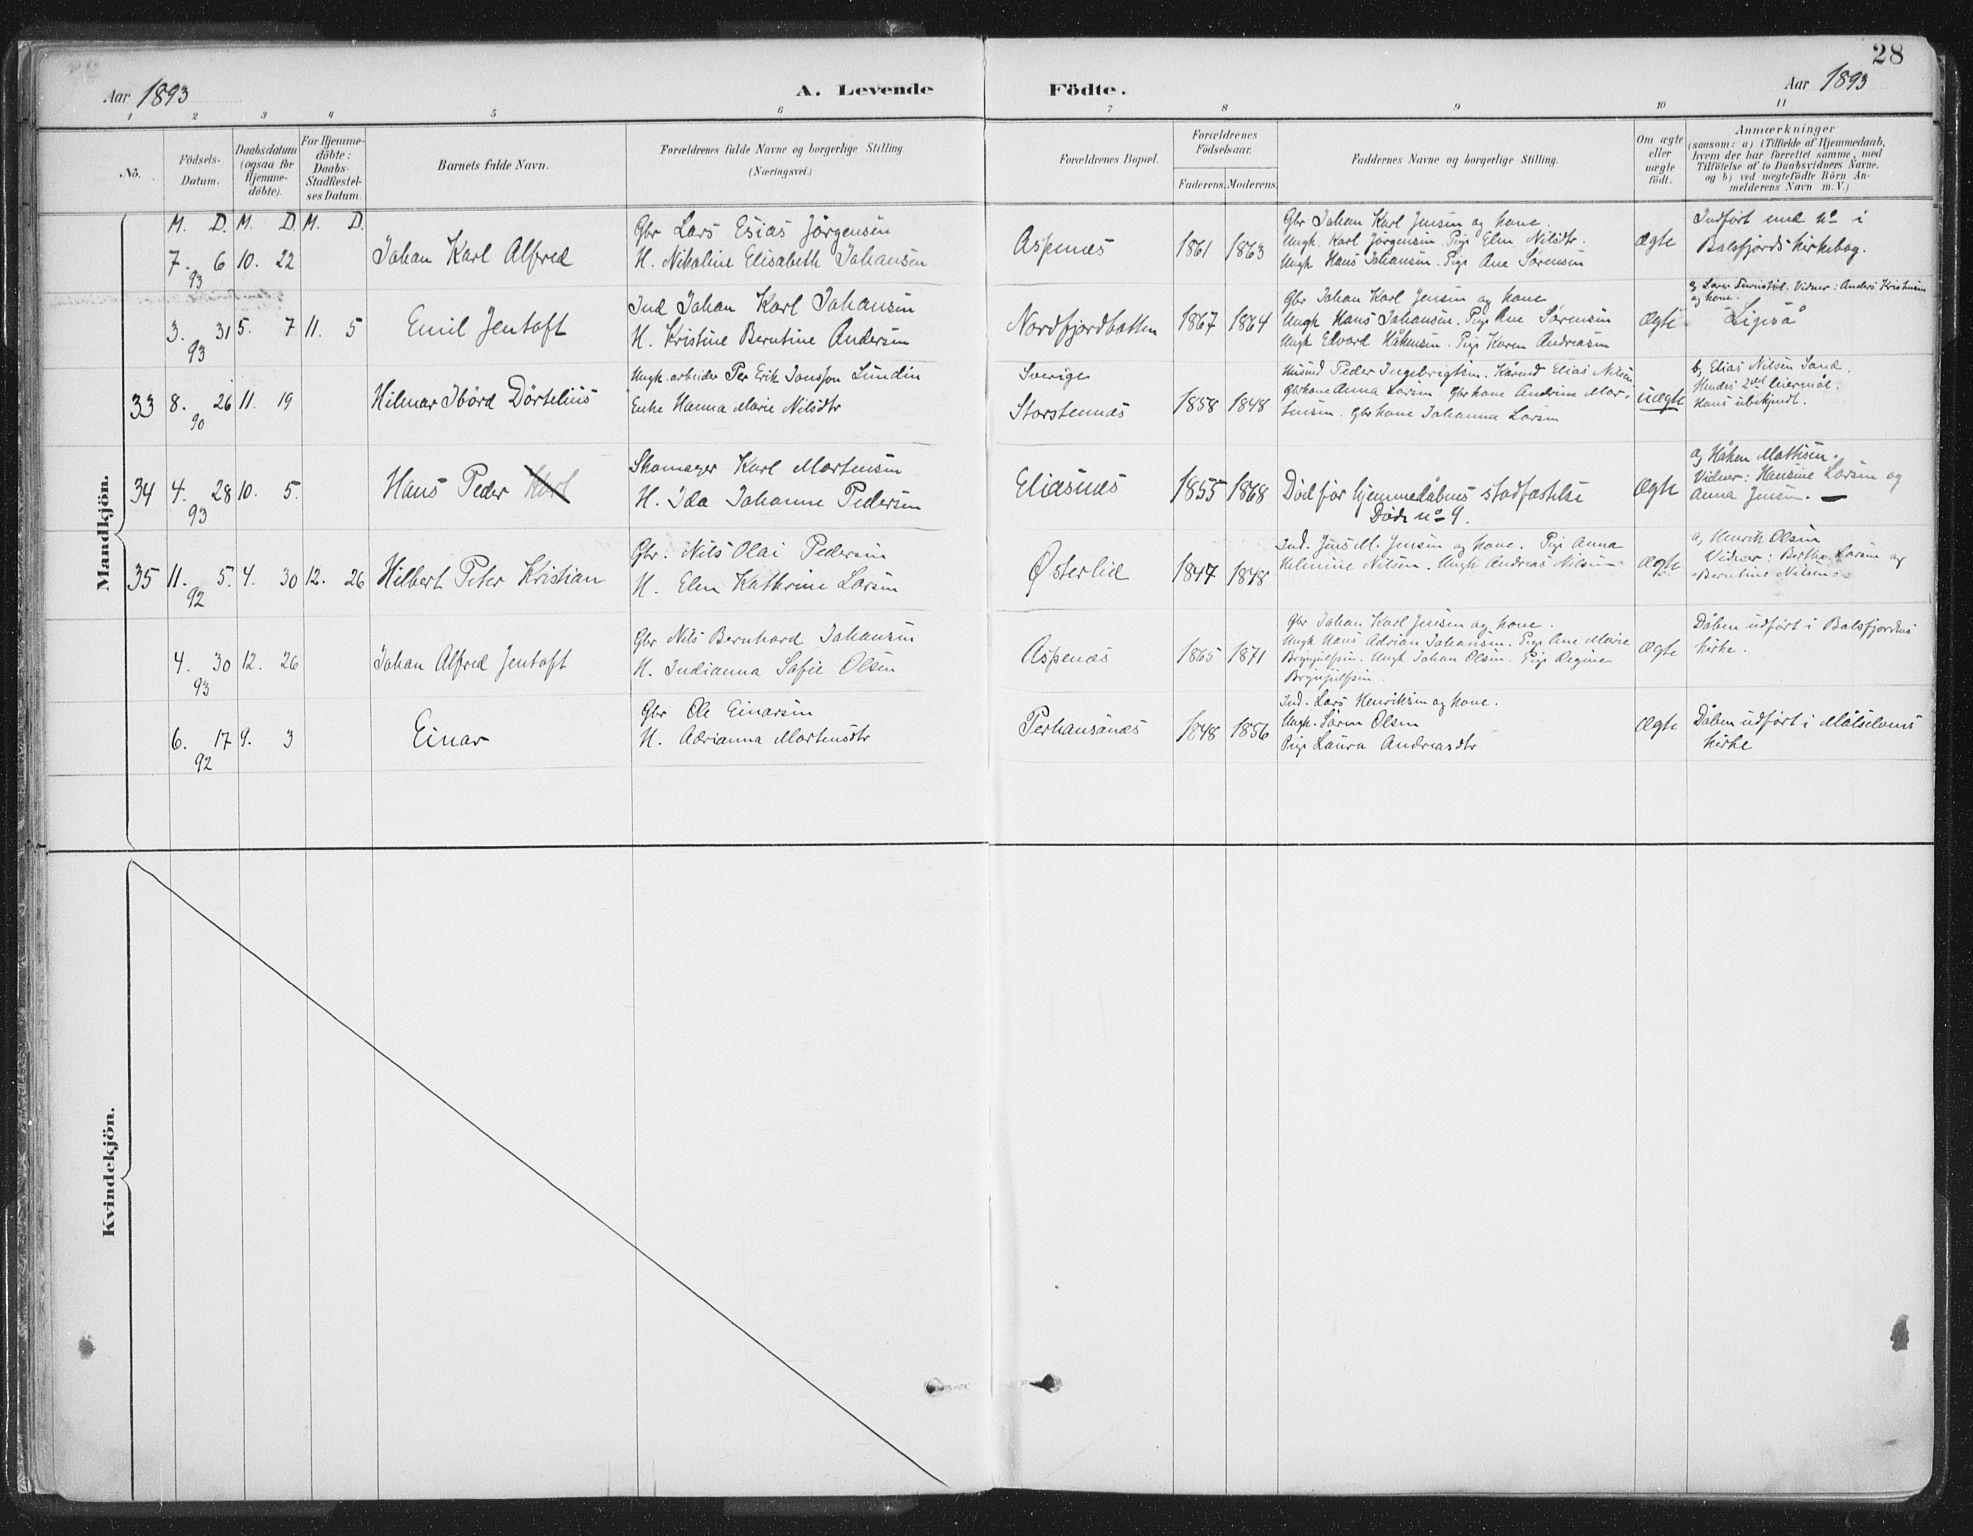 28
Aar 1893
A. Levende Födte.
Aar 1893
1 2 3 4 5 6 7 8 9 10 11
No.
Födsels-
Datum.
Daabsdatum
(ogsaa for
Hjemme-
döbte).
For Hjemme-
döbte:
Daabs-
Stadfæstel-
ses Datum.
Barnets fulde Navn.
Forældrenes fulde Navne og borgerlige Stilling.
(Næringsvei.)
Forældrenes Bopæl.
Forældrenes
Födselsaar.
Faderens. Moderens.
Faddernes Navne og borgerlige Stilling.
Om ægte
eller
uægte
födt.
Anmærkninger
(saasom: a) i Tilfælde af Hjemmedaab,
hvem der har forrettet samme, med
Tilföielse af to Daabsvidners Navne.
og b) ved uægtefödte Börn An-
melderens Navn m. V.)
Mandkjön.
M. D. M. D. M. D.
7. 6 10. 22
93
Johan Karl Alfred
Gbr Lars Esias Jörgensen
H. Nikoline Elisabeth Johansen
Aspenæs
1861 1863
Gbr Johan Karl Jensen og kone.
Ungk. Karl Jörgensen. Pige Elen Nilsdtr.
Ungk Hans Johansen. Pige Ane Sörensen
Ægte
Indført und No i
Balsfjords kirkebog.
3. 31 5. 7 11. 5
93
Emil Jentoft
Ind Johan Karl Johansen
H. Kristine Berntine Andersen
Nordfjordbotten
1867 1864
Gbr Johan Karl Jensen og kone
Ungk Hans Johansen. Pige Ane Sørensen
Ungk Edvard Håkensen. Pige Karen Andreasen
Ægte
Vidner: Anders Kristensen
og kone.
Ligeså
33 8. 26 11. 19
90
Hilmar Ibörd Dörtelius
Ungk. arbeider Per Erik Jonsson Lundin
Enke Hanna Marie Nilsdtr
Sverige
Storstennæs
1858 1848
Husmd Peder Ingebrigtsen. Kårmd Elias Nilsen
Gbrkone Anna Larsen. Gbrkone Andrine Mor-
tensen. Gbrkone Johanna Larsen
uægte
b, Elias Nilsen Sand.
Hendes 2det leiermål.
Hans ubekjendt.
34 4. 28 10. 5.
93
Hans Peder Karl
Skomager Karl Mortensen
H. Ida Johanne Pedersen
Eliasnæs
1855 1868
Död för hjemmedåbens stadfæstelse
Døde No 9.
Ægte
a, Håken Mattisen.
Vidner: Hansine Larsen og
Anna Jensen. —
35 11. 5. 4. 30 12. 26
92
Hilbert Peter Kristian
Gbr. Nils Olai Pedersen
H. Elen Kathrine Larsen
Østerlid
1847 1848
Ind. Jens M. Jensen og kone. Pige Anna
Helmine Nilsen. Ungk Andreas Nilsen
Ægte
a, Henrik Olsen
Vidner: Berthe Larsen og
Berntine Nilsen.
4. 30 12. 26
93
Johan Alfred Jentoft
Gbr Nils Bernhard Johansen
H. Indianna Sofie Olsen
Aspenæs
1865 1871
Gbr Johan Karl Jensen og kone.
Ungk Hans Adrian Johansen. Pige Ane Marie
Brynjulfsen. Ungk Johan Olsen. Pige Regine
Brynjulfsen.
Ægte
Dåben udført i Balsfjordens
kirke.
6. 17 9. 3
92
Einar
Gbr Ole Einarsen
H. Adrianna Mortensdtr
Perhansånæs
1848 1856
Ind. Lars Henriksen og kone.
Ungk. Sören Olsen
Pige Laura Andreasdtr
Ægte
Dåben udført i Målselvens
kirke
Kvindekjön.